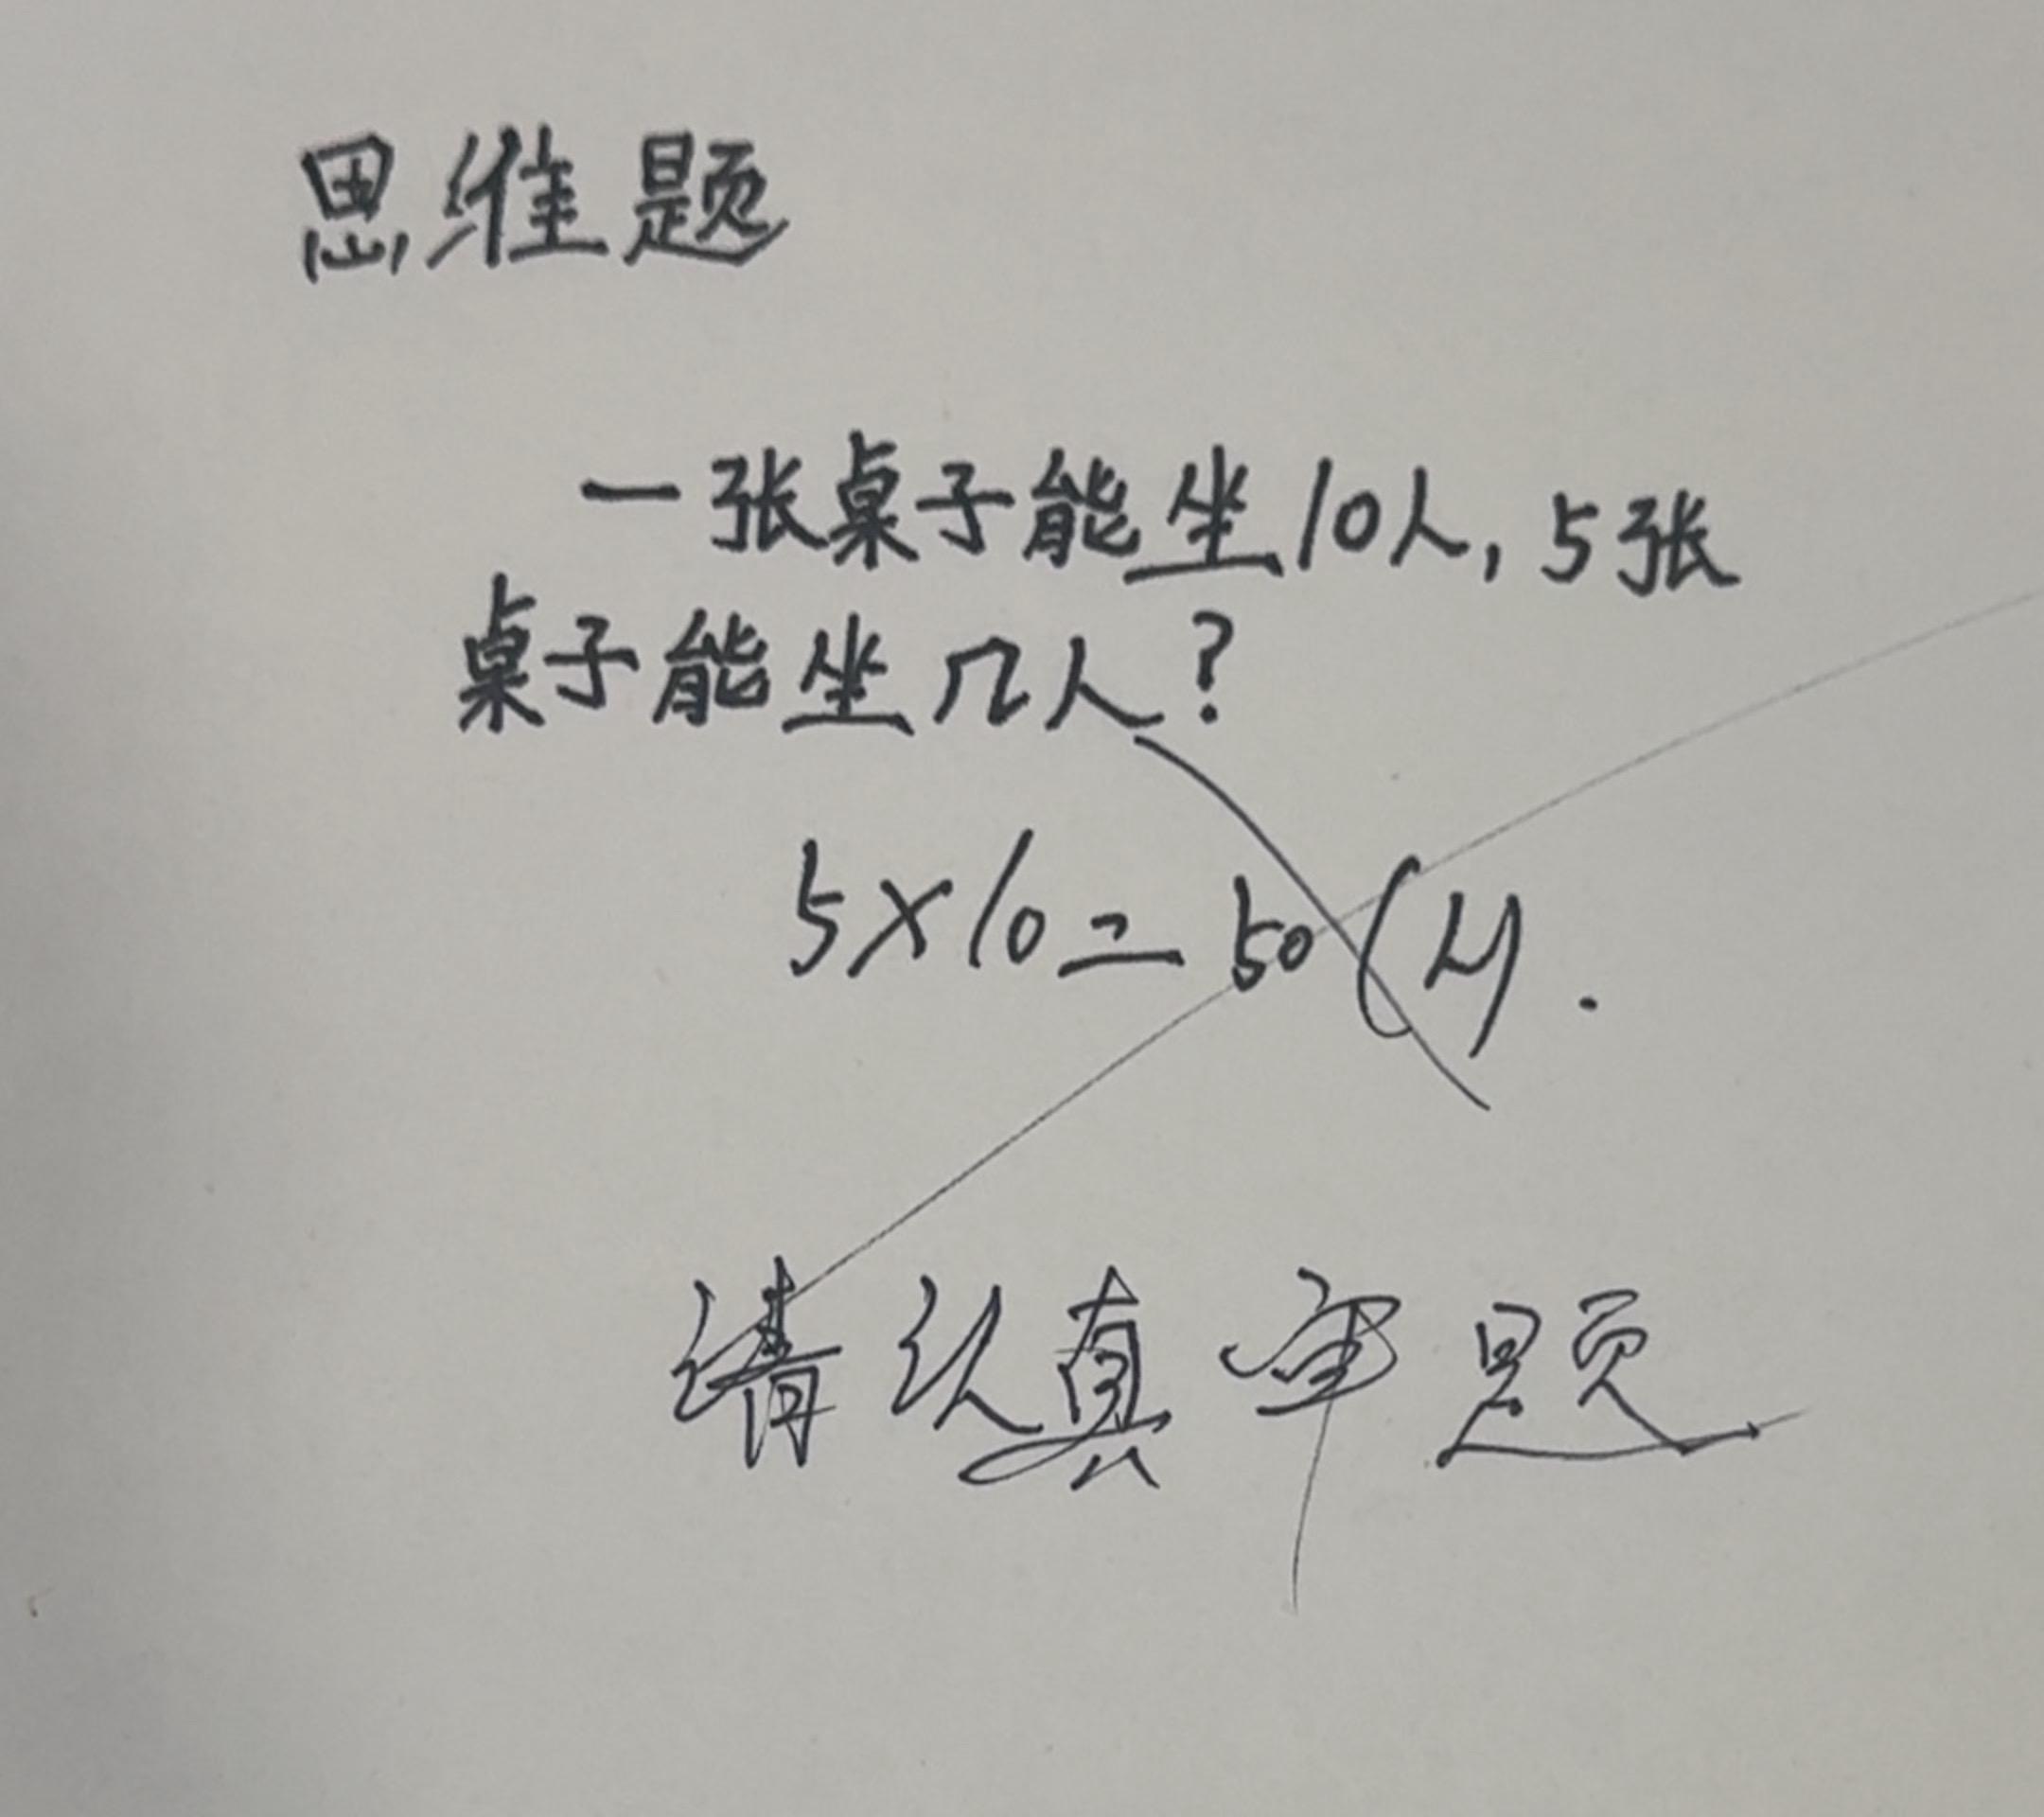 思维题
一张桌子能坐10人，5张
桌子能坐几人？
5×10=50(人).
请认真审题